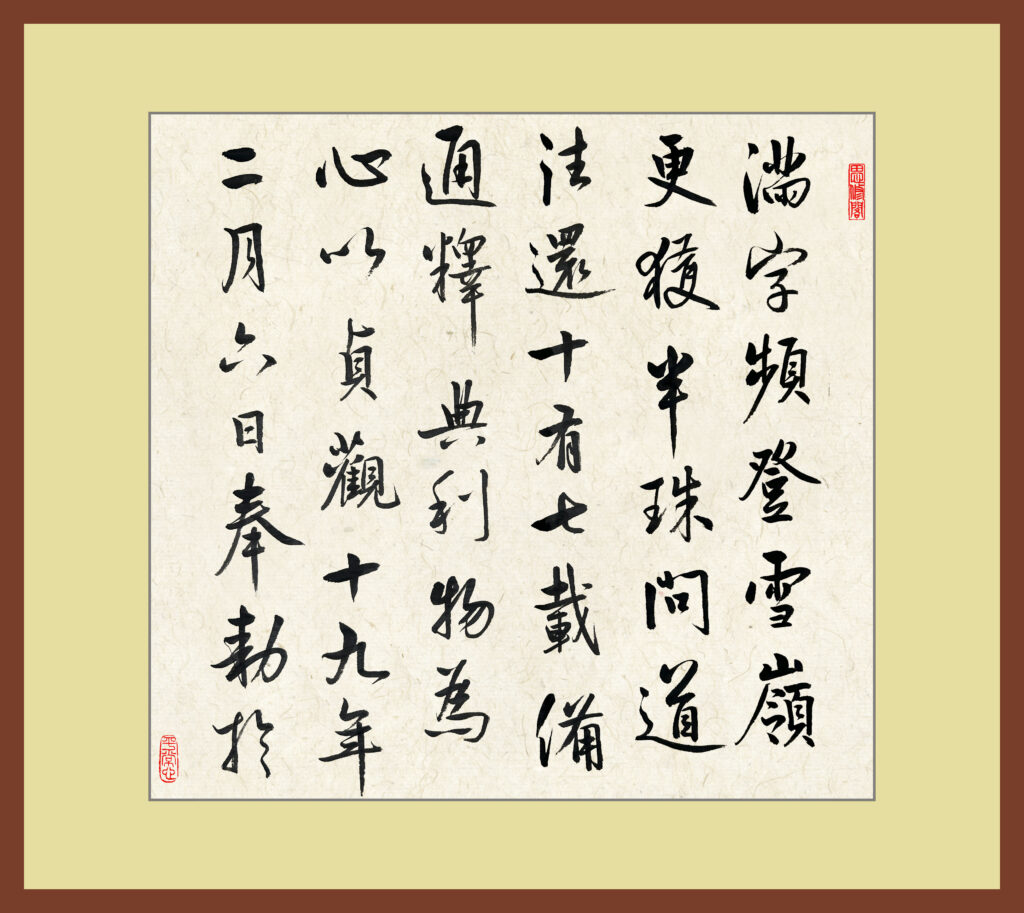 思修閣
滿字頻登雪嶺
更獲半珠問道
往還十有七載備
通釋典利物為
心以貞觀十九年
二月六日奉勅於
平常心